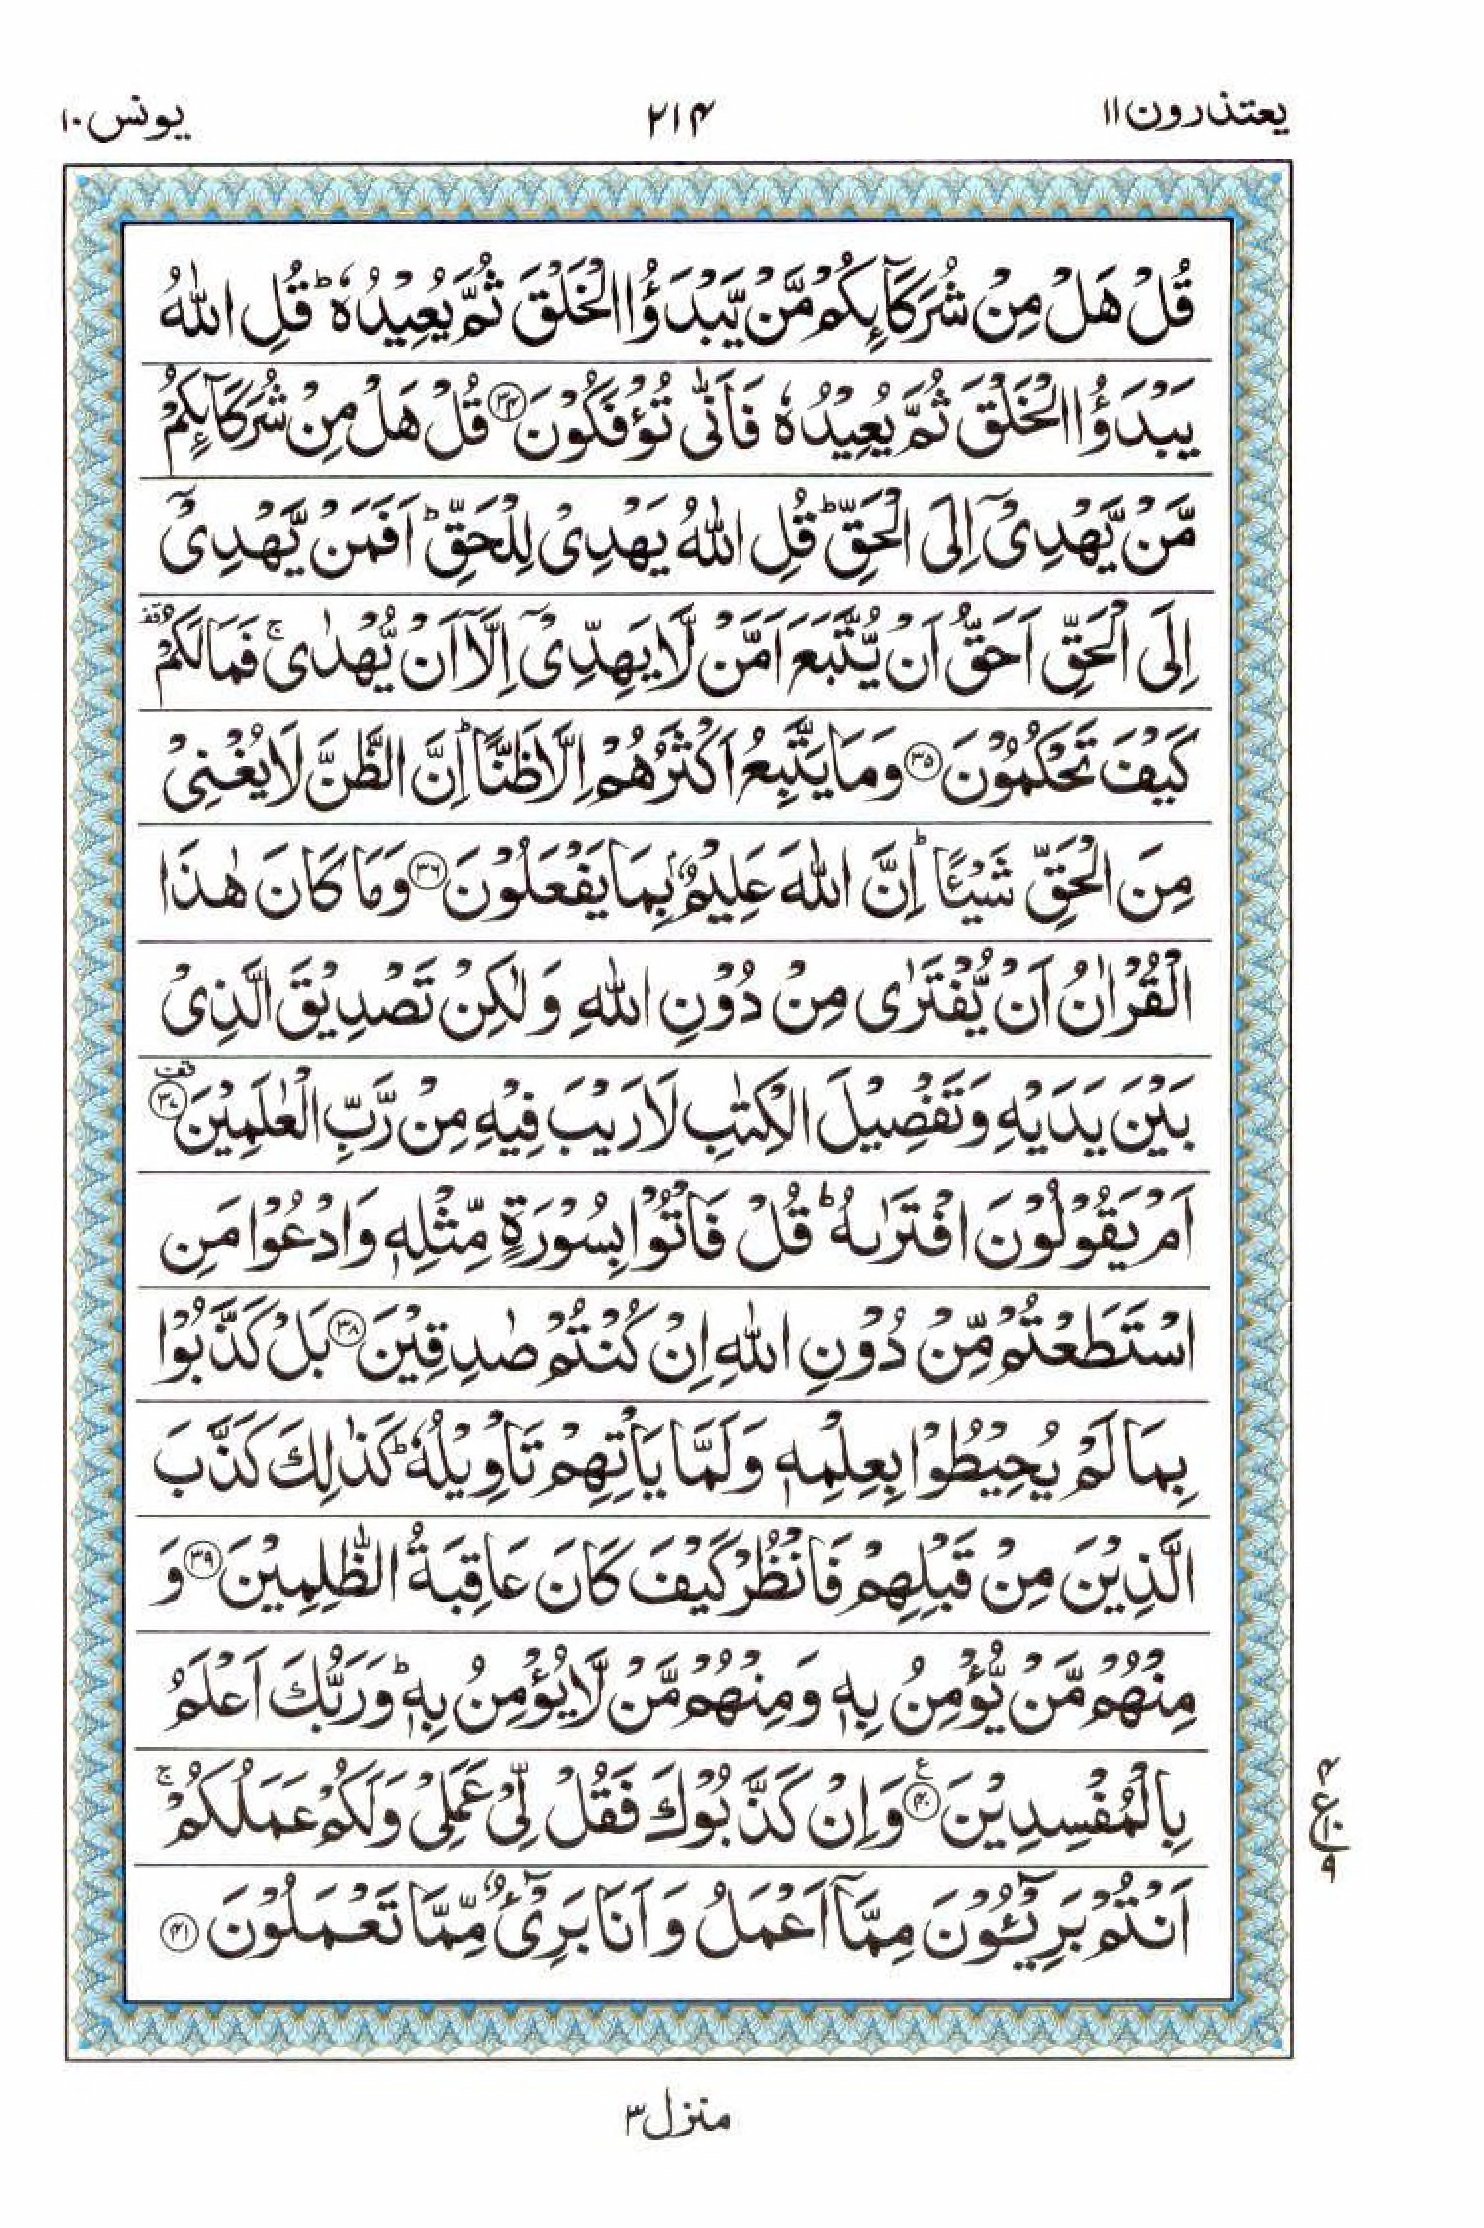 یعتذرون ۱۱
۲۱۴
یونس ۱۰
قُلْ هَلْ مِنْ شُرَكَآىِٕكُمْ مَّنْ یَّبْدَؤُا الْخَلْقَ ثُمَّ یُعِیْدُهٗ ؕ قُلِ اللّٰهُ
یَبْدَؤُا الْخَلْقَ ثُمَّ یُعِیْدُهٗ فَاَنّٰى تُؤْفَكُوْنَ ﴿۳۴﴾ قُلْ هَلْ مِنْ شُرَكَآىِٕكُمْ
مَّنْ یَّهْدِیْۤ اِلَى الْحَقِّ ؕ قُلِ اللّٰهُ یَهْدِیْ لِلْحَقِّ ؕ اَفَمَنْ یَّهْدِیْۤ
اِلَى الْحَقِّ اَحَقُّ اَنْ یُّتَّبَعَ اَمَّنْ لَّا یَهِدِّیْۤ اِلَّاۤ اَنْ یُّهْدٰى ۚ فَمَا لَكُمْ قف
كَیْفَ تَحْكُمُوْنَ ﴿۳۵﴾ وَمَا یَتَّبِعُ اَكْثَرُهُمْ اِلَّا ظَنًّا ؕ اِنَّ الظَّنَّ لَا یُغْنِیْ
مِنَ الْحَقِّ شَیْـًٔا ؕ اِنَّ اللّٰهَ عَلِیْمٌۢ بِمَا یَفْعَلُوْنَ ﴿۳۶﴾ وَمَا كَانَ هٰذَا
الْقُرْاٰنُ اَنْ یُّفْتَرٰى مِنْ دُوْنِ اللّٰهِ وَلٰكِنْ تَصْدِیْقَ الَّذِیْ
بَیْنَ یَدَیْهِ وَتَفْصِیْلَ الْكِتٰبِ لَا رَیْبَ فِیْهِ مِنْ رَّبِّ الْعٰلَمِیْنَ ﴿۳۷﴾ قف
اَمْ یَقُوْلُوْنَ افْتَرٰىهُ ؕ قُلْ فَاْتُوْا بِسُوْرَةٍ مِّثْلِهٖ وَادْعُوْا مَنِ
اسْتَطَعْتُمْ مِّنْ دُوْنِ اللّٰهِ اِنْ كُنْتُمْ صٰدِقِیْنَ ﴿۳۸﴾ بَلْ كَذَّبُوْا
بِمَا لَمْ یُحِیْطُوْا بِعِلْمِهٖ وَلَمَّا یَاْتِهِمْ تَاْوِیْلُهٗ ؕ كَذٰلِكَ كَذَّبَ
الَّذِیْنَ مِنْ قَبْلِهِمْ فَانْظُرْ كَیْفَ كَانَ عَاقِبَةُ الظّٰلِمِیْنَ ﴿۳۹﴾ وَ
مِنْهُمْ مَّنْ یُّؤْمِنُ بِهٖ وَمِنْهُمْ مَّنْ لَّا یُؤْمِنُ بِهٖ ؕ وَرَبُّكَ اَعْلَمُ
بِالْمُفْسِدِیْنَ ﴿۴۰﴾ ع وَاِنْ كَذَّبُوْكَ فَقُلْ لِّیْ عَمَلِیْ وَلَكُمْ عَمَلُكُمْ ۚ
اَنْتُمْ بَرِیْٓـُٔوْنَ مِمَّاۤ اَعْمَلُ وَاَنَا بَرِیْٓءٌ مِّمَّا تَعْمَلُوْنَ ﴿۴۱﴾
۴
ع ۱۰
۹
منزل ۳